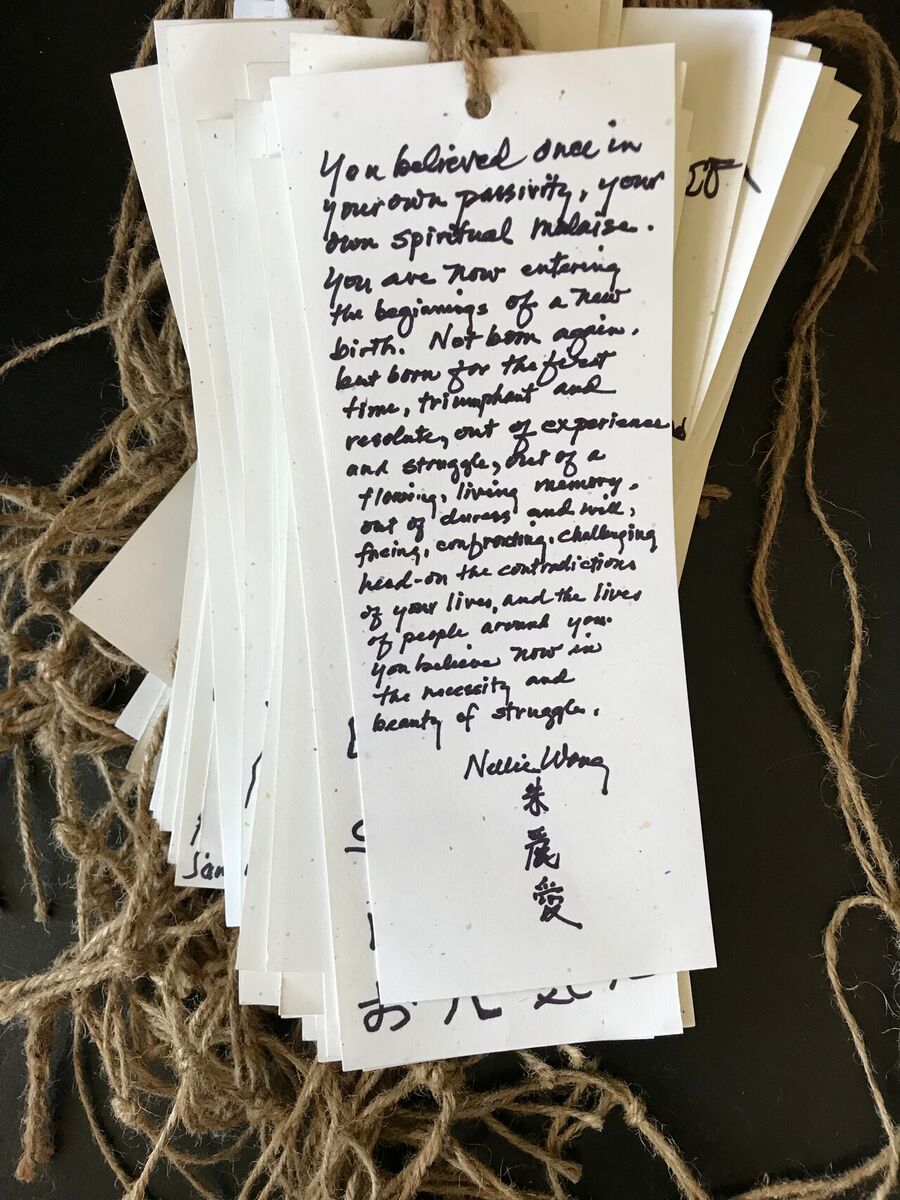 You believed once in
your own passivity, your
own spiritual malaise.
You are now entering
the beginnings of a new
birth. Not born again,
but born for the first
time, triumphant and
resolute, out of experience
and struggle, out of a
flowing, living memory,
out of duress and will,
facing, confronting, challenging
head-on the contradictions
of your lives, and the lives
of people around you.
You believe now in
the necessity and
beauty of struggle.
Nellie Wong
朱
麗
愛